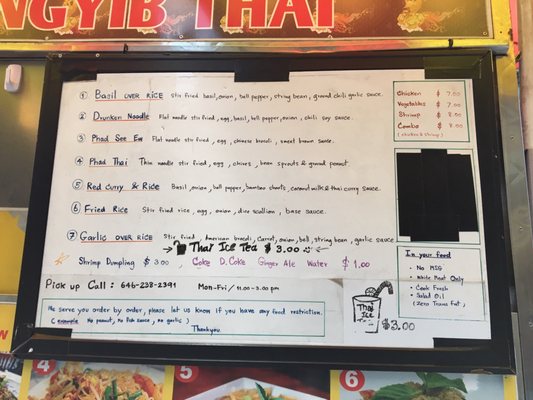 NGYIB THAI
① BASIL OVER RICE Stir fried basil, onion, bell pepper, string bean, ground chili garlic sauce.
② Drunken Noodle Flat noodle stir fried, egg, basil, bell pepper, onion, chili soy sauce.
③ Phad See Ew Flat noodle stir fried, egg, chinese broccoli, sweet brown sauce.
④ Phad Thai Thin noodle stir fried, egg, chives, bean sprouts & ground peanut.
⑤ Red Curry & Rice Basil, onion, bell pepper, bamboo shoots, coconut milk & thai curry sauce.
⑥ Fried Rice Stir fried rice, egg, onion, dice scallion, base sauce.
⑦ Garlic over rice Stir fried, American broccoli, carrot, onion, bell, string bean, garlic sauce
Thai Ice Tea $3.00
Shrimp Dumpling $3.00, Coke D. Coke Ginger Ale Water $1.00
Pick up Call: 646-238-2391 Mon-Fri/11.00-3.00 pm
We serve you order by order, please let us know if you have any food restriction.
(example No peanut, No fish sauce, no garlic)
Thankyou.
Chicken $7.00
Vegetables $7.00
Shrimp $8.00
Combo $8.00
(chicken & shrimp)
In your food
• No MSG
• White Meat Only
• Cook Fresh
• Salad Oil
(Zero Trans Fat)
Thai
Ice
$3.00
4
5
6